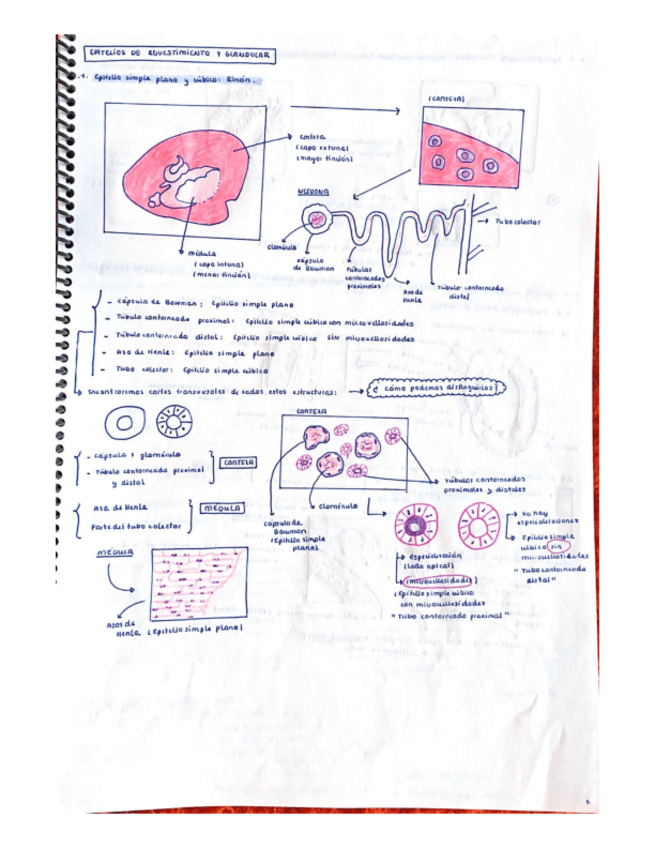 EPITELIOS DE REVESTIMIENTO Y GLANDULAR
1. Epitelio simple plano y cúbico: Riñón.
(CORTEZA)
corteza
(capa externa)
(mayor tinción)
NEFRONA
Tubo colector
glomérulo
cápsula
de Bowman
Túbulos
contorneados
proximales
Asa de
Henle
Túbulo contorneado
distal
médula
(capa interna)
(menor tinción)
- cápsula de Bowman: Epitelio simple plano
- Túbulo contorneado proximal: Epitelio simple cúbico con microvellosidades
- Túbulo contorneado distal: Epitelio simple cúbico sin microvellosidades
- Asa de Henle: Epitelio simple plano
- Tubo colector: Epitelio simple cúbico
Encontraremos cortes transversales de todas estas estructuras:
¿cómo podemos distinguirlos?
CORTEZA
- cápsula + glomérulo
- Túbulo contorneado proximal
y distal
CORTEZA
Asa de Henle
Parte del tubo colector
MÉDULA
túbulos contorneados
proximales y distales
glomérulo
cápsula de
Bowman
(Epitelio simple
plano)
No hay
especializaciones
Epitelio simple
cúbico sin
microvellosidades
"Tubo contorneado
distal"
especialización
(lado apical)
(microvellosidades)
(Epitelio simple cúbico
con microvellosidades
"Tubo contorneado proximal"
MÉDULA
Asas de
Henle (Epitelio simple plano)